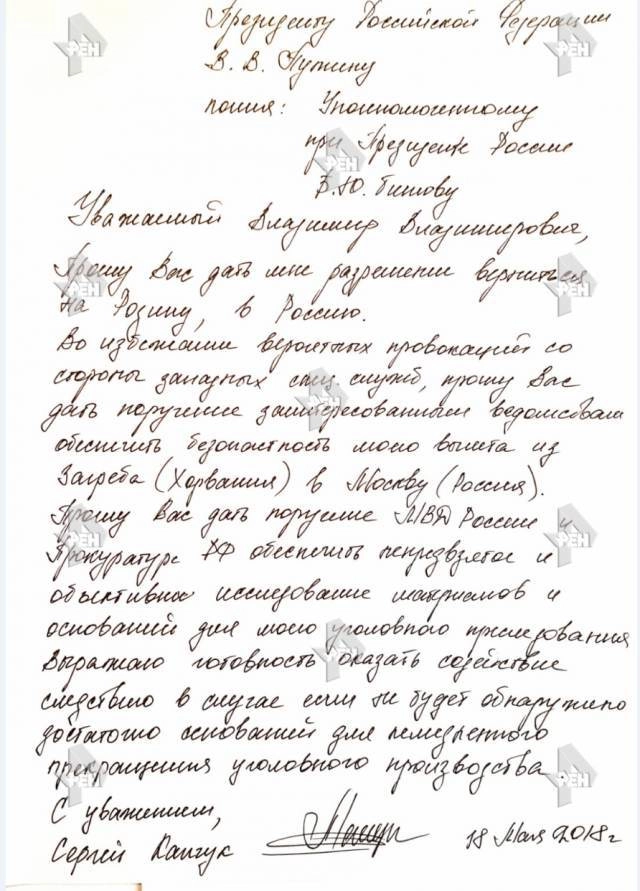 Президенту Российской Федерации
В. В. Путину
копия: Уполномоченному
при Президенте России
Б.Ю. Титову
Уважаемый Владимир Владимирович,
Прошу Вас дать мне разрешение вернуться
на Родину, в Россию.
Во избежании вероятных провокаций со
стороны западных спец служб, прошу Вас
дать поручение заинтересованным ведомствам
обеспечить безопастность моего вылета из
Загреба (Хорвания) в Москву (Россия).
Прошу Вас дать поручение МВД России и
Прокуратуре РФ обеспечить непредвзятое и
объективное исследование материалов и
оснований для моего уголовного приследования
Выражаю готовность оказать содействие
следствию в случае если не будет обнаружено
достаточно оснований для немедленного
прекращения уголовного производства.
С уважением,
Сергей Капчук 18 Мая 2018г
РЕН